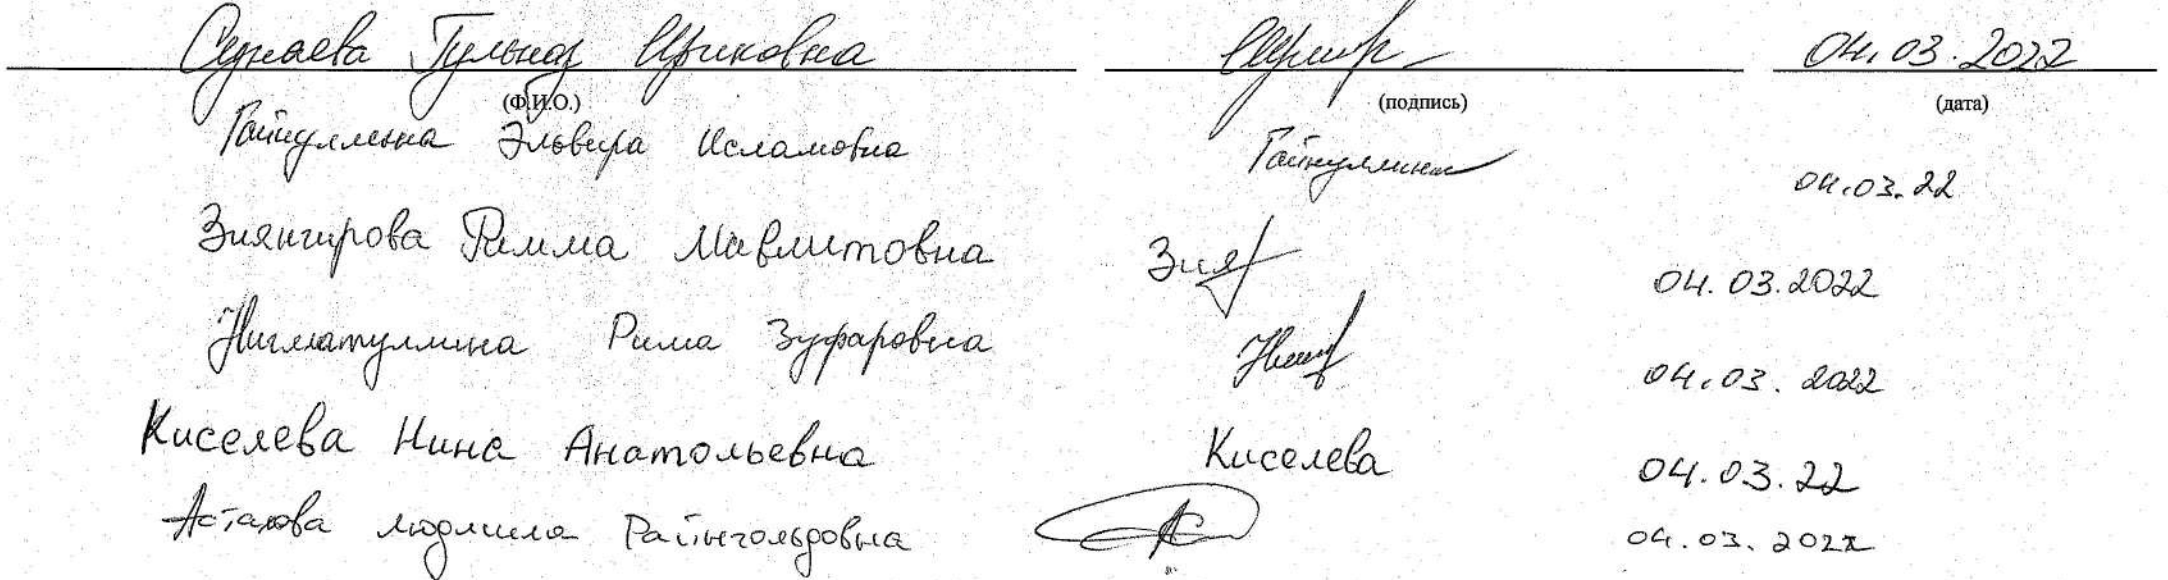 Гульназ 04.03.2022
(Ф.И.О.) (подпись) (дата)
Гайнуллина Эльвира Исламовна Гайнуллина 04.03.22
Зиянгирова Римма Мавлитовна Зия 04.03.2022
Нигматуллина Рима Зуфаровна 04.03.2022
Киселева Нина Анатольевна Киселева 04.03.22
Астахова Людмила Райнгольдовна 04.03.2022